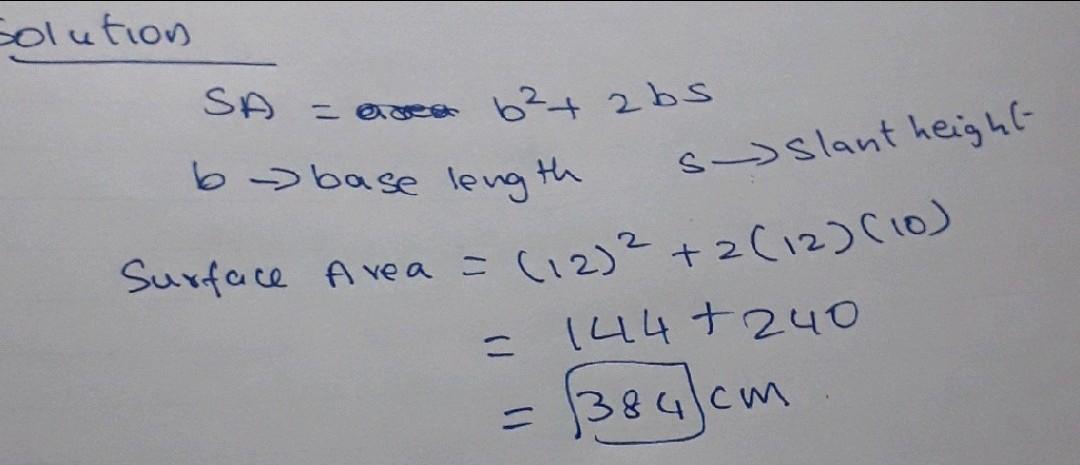 Solution
SA = b² + 2bs
b → base length s → slant height
Surface Area = (12)² + 2(12)(10)
= 144 + 240
= 384 cm